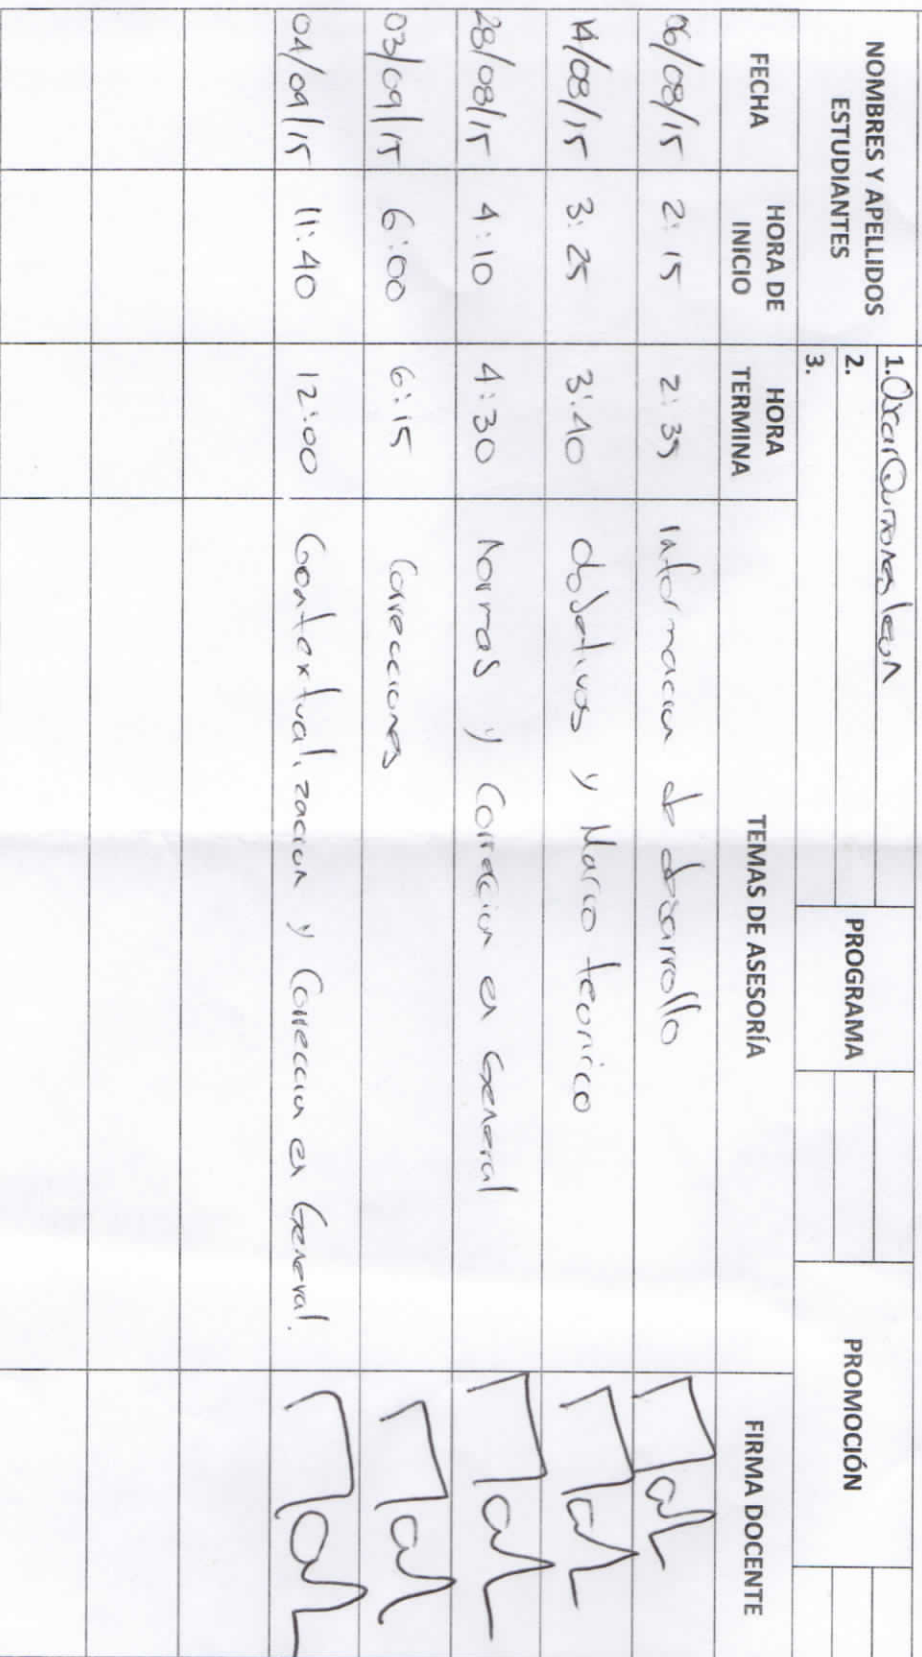 NOMBRES Y APELLIDOS ESTUDIANTES
1. Oscar Quinones leon
2.
3.
PROGRAMA
PROMOCIÓN
FECHA HORA DE INICIO HORA TERMINA TEMAS DE ASESORÍA FIRMA DOCENTE
06/08/15 2:15 2:35 informacion de desarrollo
14/08/15 3:25 3:40 objetivos y Marco teorico
28/08/15 4:10 4:30 Normas y Correccion en General
03/09/15 6:00 6:15 Correcciones
04/09/15 11:40 12:00 Contextualizacion y Correccion en General.